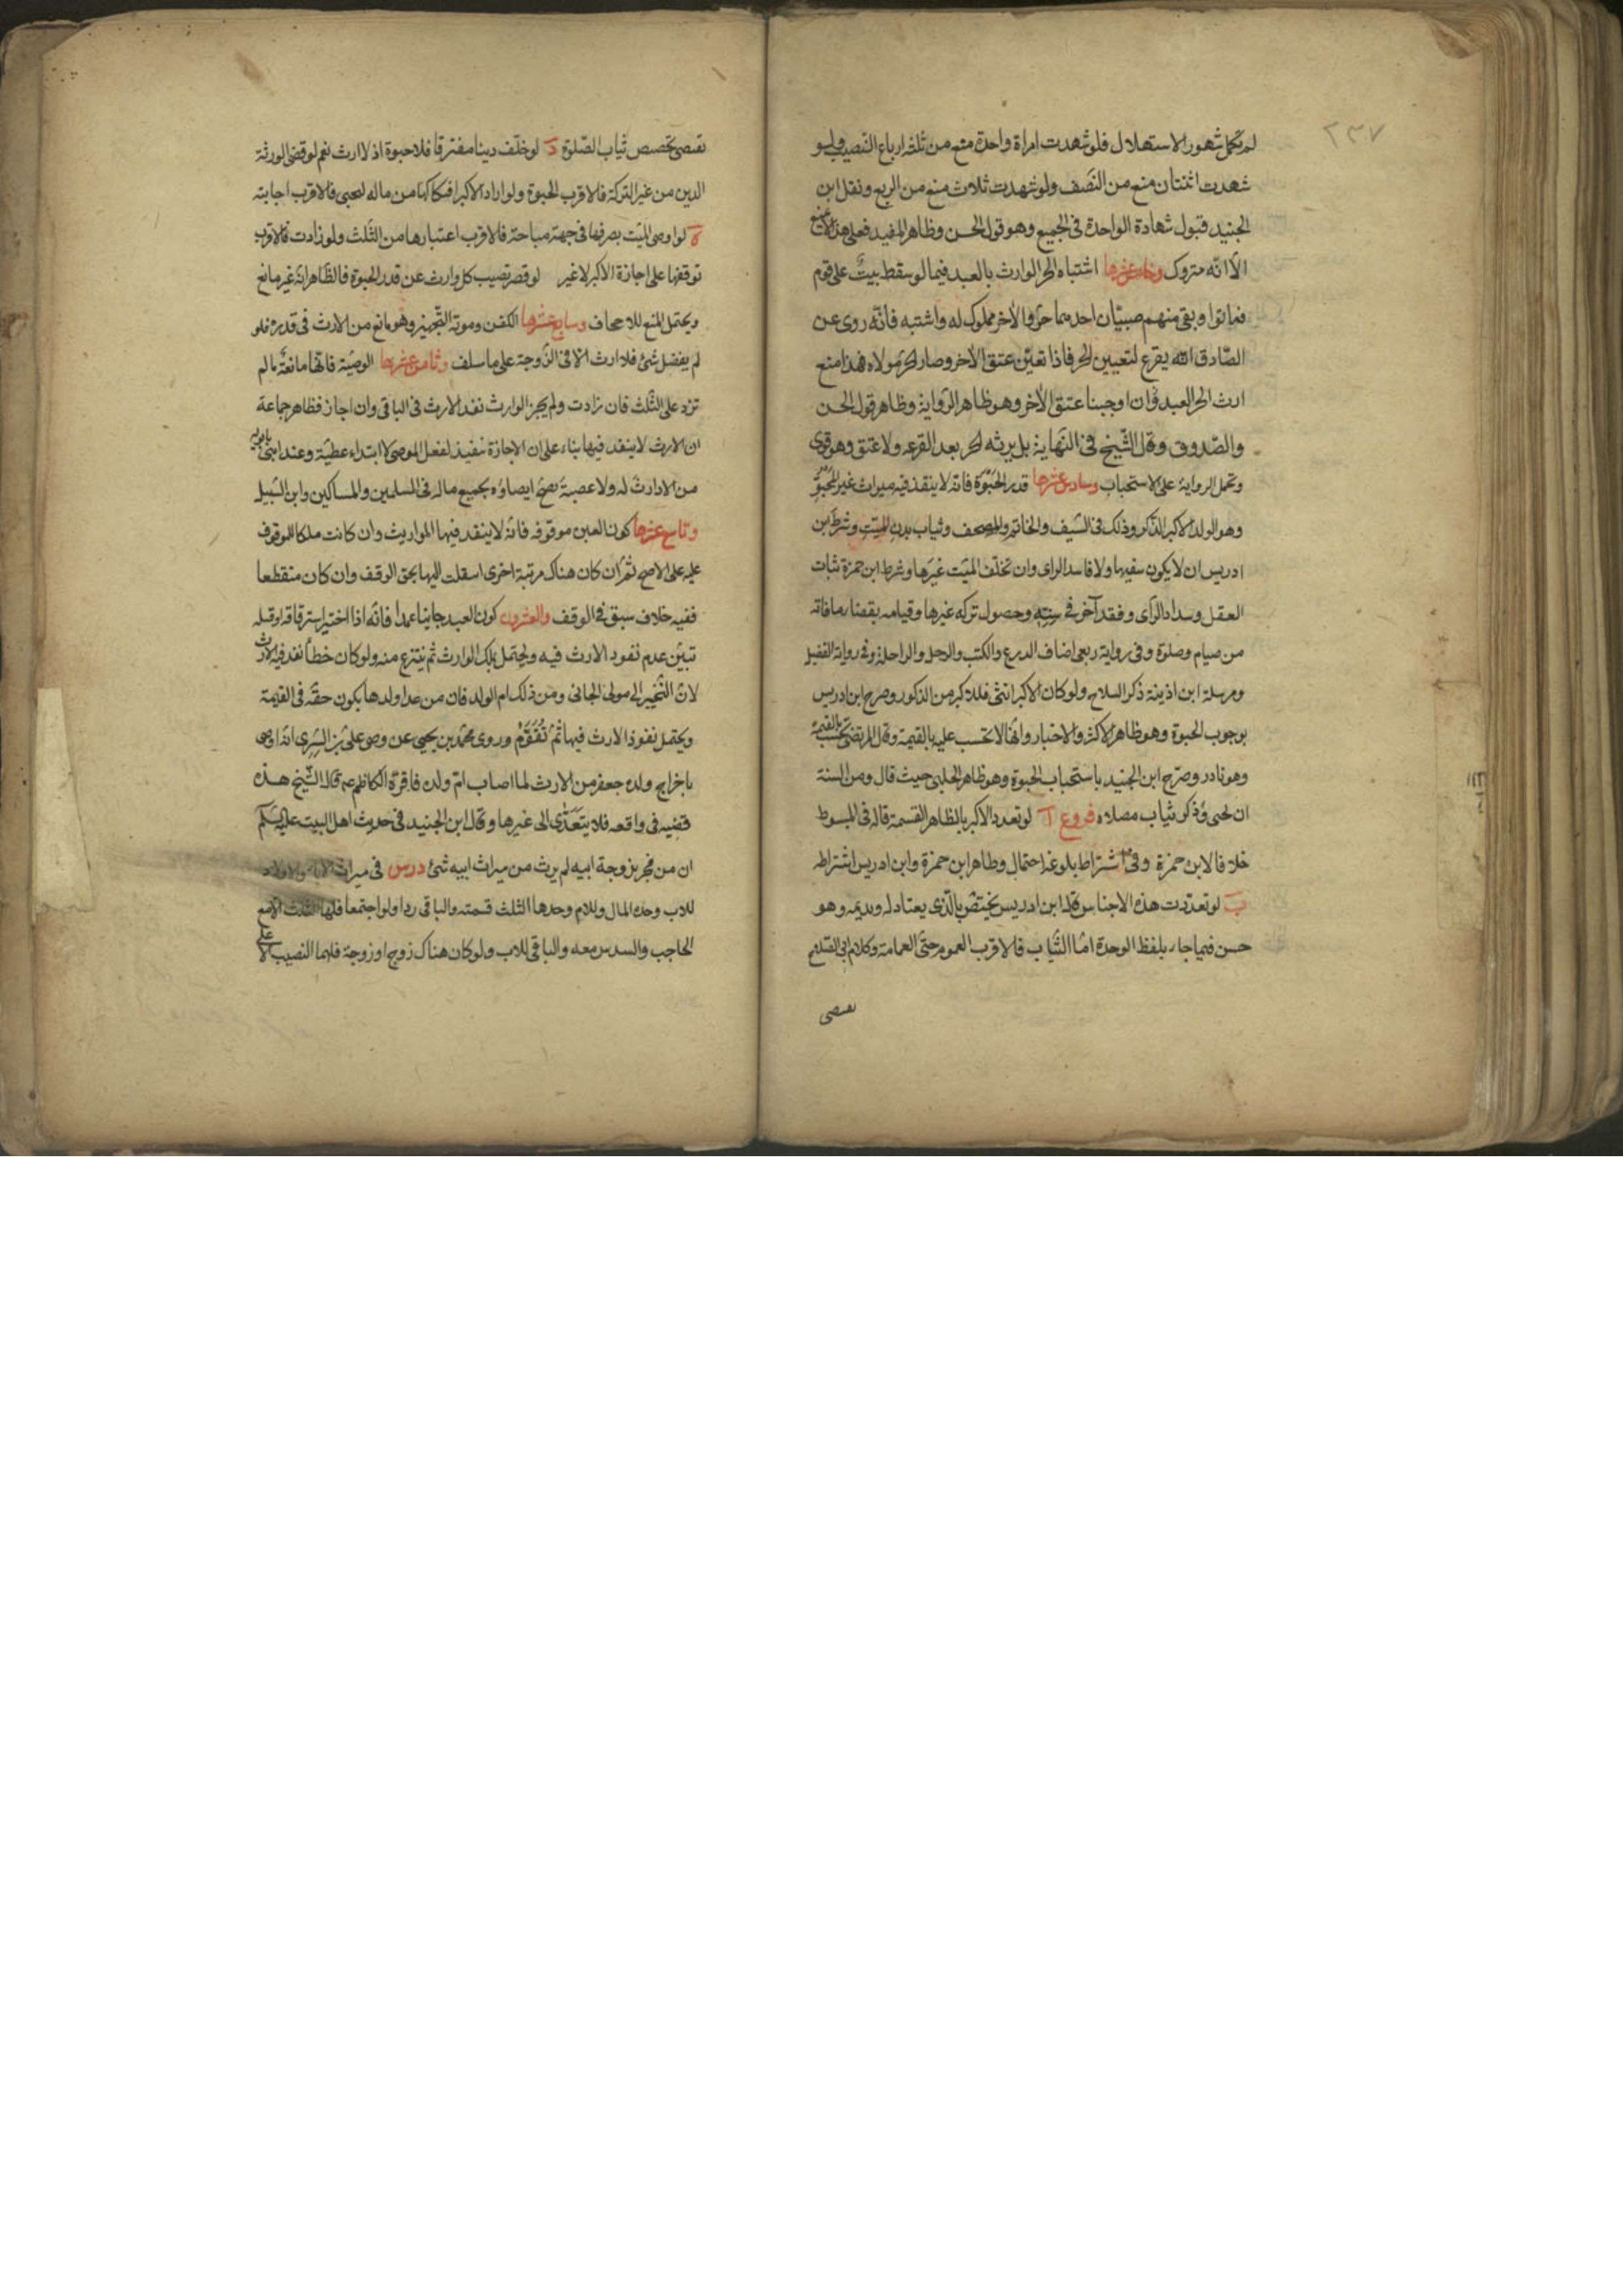 ٢٣٧
لم تكمل شهور الاستهلال فلو شهدت امراة واحدة منع من ثلثة ارباع النصيب ولو
شهدت اثنتان منع من النصف ولو شهدت ثلاث منع من الربع ونقل ابن
الجنيد قبول شهادة الواحدة فى الجميع وهو قول الحسن وظاهر المفيد فعلى هذا لا منع
الا انه متروك وخامس عشرها اشتباه الحر الوارث بالعبد فيما لو سقط بيت على قوم
فماتوا وبقى منهم صبيان احدهما حر والاخر مملوك له واشتبه فانه روى عن
الصادق انه يقرع لتعيين الحر فاذا تعين عتق الاخر وصار الحر مولاه فهذا منع
ارث الحر العبد وان اوجبنا عتق الاخر وهو ظاهر الرواية وظاهر قول الحسن
والصدوق وقال الشيخ فى النهاية بل يرثه الحر بعد القرعه ولا عتق وهو قوى
وتحمل الرواية على الاستحباب وسادس عشرها قدر الحبوة فانه لا ينفذ فيه ميراث غير المحبو
وهو الولد الاكبر الذكر وذلك فى السيف والخاتم والمصحف وثياب بدن الميت وشرط ابن
ادريس ان لا يكون سفيها ولا فاسد الراى وان تخلف الميت غيرها وشرط ابن حمزة ثبات
العقل وسداد الراى وفقد آخر فى سنه وحصول تركه غيرها وقيامه بقضاء ما فاته
من صيام وصلوة وفى رواية ربعى اضاف الدرع والكتب والرحل والراحلة وفى رواية الفضيل
ومرسلة ابن اذينة ذكر السلاح ولو كان الاكبر انثى فللاكبر من الذكور وصرح ابن ادريس
بوجوب الحبوة وهو ظاهر الاكثر والاخبار وانها لا تحسب عليه بالقيمة وقال المرتضى تحسب بالقيمة
وهو نادر وصرح ابن الجنيد باستحباب الحبوة وهو ظاهر الحلبى حيث قال ومن السنة
ان يحبى وذكر ثياب مصلاه فروع آ لو تعدد الاكبر بالظاهر القسمة قاله فى المبسوط
خلافا لابن حمزة وفى اشتراط بلوغه احتمال وظاهر ابن حمزة وابن ادريس اشتراطه
ب لو تعددت هذه الاجناس قال ابن ادريس يختص بالذى يعتاد له ويديمه وهو
حسن فيما جاء بلفظ الوحدة اما الثياب فالاقرب العموم حتى العمامة وكلام ابى الصلاح
يقتضى
يقتضى تخصيص ثياب الصلوة د لو خلف دينا مفترقا فلا حبوة اذ لا ارث نعم لو قضى الورثة
الدين من غير التركة فالاقرب الحبوة ولو اراد الاكبر افتكاكها من ماله ليحبى فالاقرب اجابته
ه لو اوصى الميت بصرفها فى جهة مباحة فالاقرب اعتبارها من الثلث ولو زادت فالاقرب
توقفها على اجازة الاكبر لا غير لو قصر نصيب كل وارث عن قدر الحبوة فالظاهر انه غير مانع
ويحتمل المنع للاجحاف وسابع عشرها الكفن ومونة التجهيز وهو مانع من الارث فى قدره فلو
لم يفضل شئ فلا ارث الا فى الزوجة على ما سلف وثامن عشرها الوصية فانها مانعة ما لم
تزد على الثلث فان زادت ولم يجز الوارث نفذ الارث فى الباقى وان اجاز فظاهر جماعة
ان الارث لا ينفذ فيها بناء على ان الاجازة تنفيذ لفعل الموصى لا ابتداء عطية وعند ابنى بابويه
من لا وارث له ولا عصبة يصح ايصاؤه بجميع ماله فى المسلمين والمساكين وابن السبيل
وتاسع عشرها كون العين موقوفه فانه لا ينفذ فيها المواريث وان كانت ملكا للموقوف
عليه على الاصح ثم ان كان هناك مرتبة اخرى انتقلت اليها بحق الوقف وان كان منقطعا
ففيه خلاف سبق فى الوقف والعشرون كون العبد جانيا عمدا فانه اذا اختير استرقاقه او قتله
تبين عدم نفوذ الارث فيه ويحتمل تملك الوارث ثم ينتزع منه ولو كان خطأ نفذ فيه الارث
لان التخيير الى مولى الجانى ومن ذلك ام الولد فان من عدا ولدها يكون حقه فى القيمة
ويحتمل نفوذ الارث فيها ثم تقوم وروى محمد بن يحيى عن وصى على بن السرى انه اوصى
باخراج ولده جعفر من الارث لما اصاب ام ولده فاقره الكاظم ع قال الشيخ هذه
قضيه فى واقعه فلا يتعدى الى غيرها وقال ابن الجنيد فى حديث اهل البيت عليهم السلم
ان من فجر بزوجة ابيه لم يرث من ميراث ابيه شئ درس فى ميراث الاباء والاولاد
للاب وحده المال وللام وحدها الثلث تسمية والباقى ردا ولو اجتمعا فلها الثلث الا مع
الحاجب والسدس معه والباقى للاب ولو كان هناك زوج او زوجة فلهما النصيب الاعلى